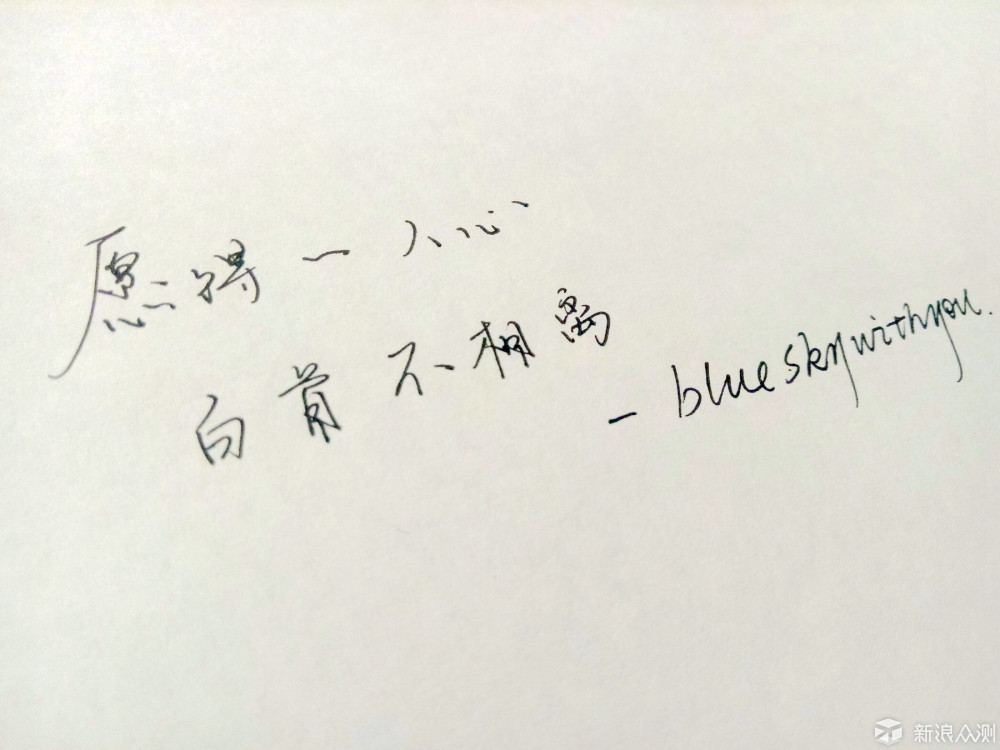 愿得一人心
白首不相离
- blueskywithyou.
新浪众测